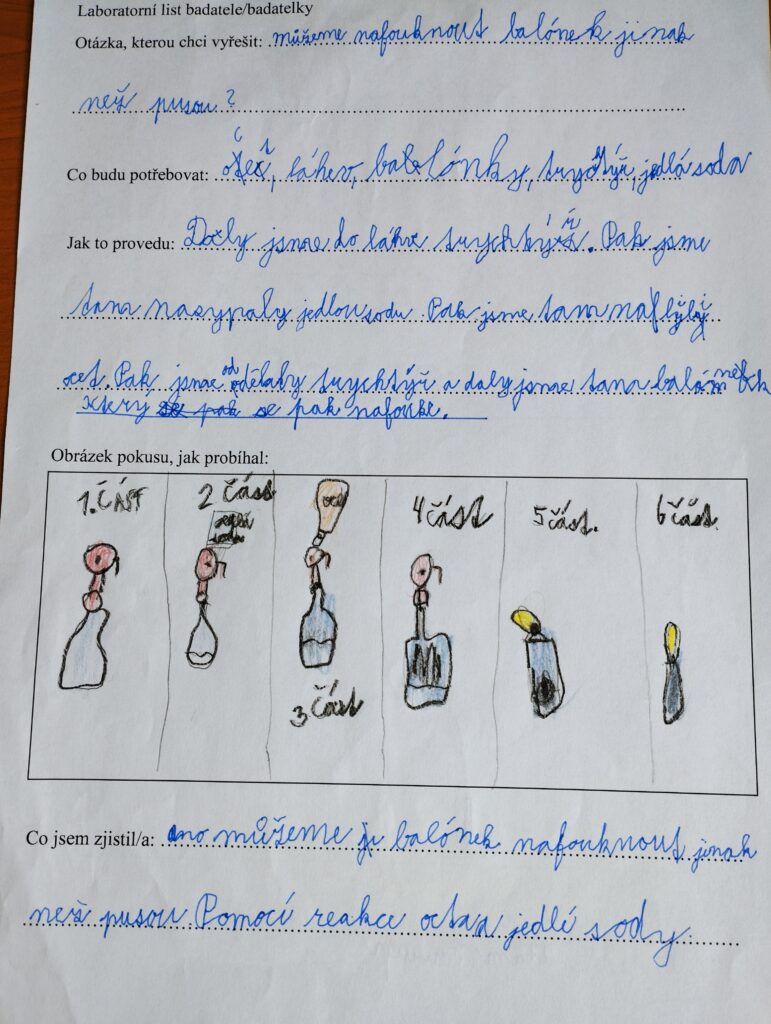 Laboratorní list badatele/badatelky
Otázka, kterou chci vyřešit: můžeme nafouknout balónek jinak
než pusou?
Co budu potřebovat: láhev, balónky, trychtýř, jedlá soda
Jak to provedu: Daly jsme do láhve trychtýř. Pak jsme
tam nasypaly jedlou sodu. Pak jsme tam
ocet. Pak jsme oddělaly trychtýř a daly jsme tam balónek
který se pak se pak nafoukl.
Obrázek pokusu, jak probíhal:
1. ČÁST
2 část
4 část
5 část.
6 část.
jedlá
soda
ocet
3 část
Co jsem zjistil/a: ano můžeme balónek nafouknout jinak
než pusou. Pomocí reakce octa a jedlé sody.